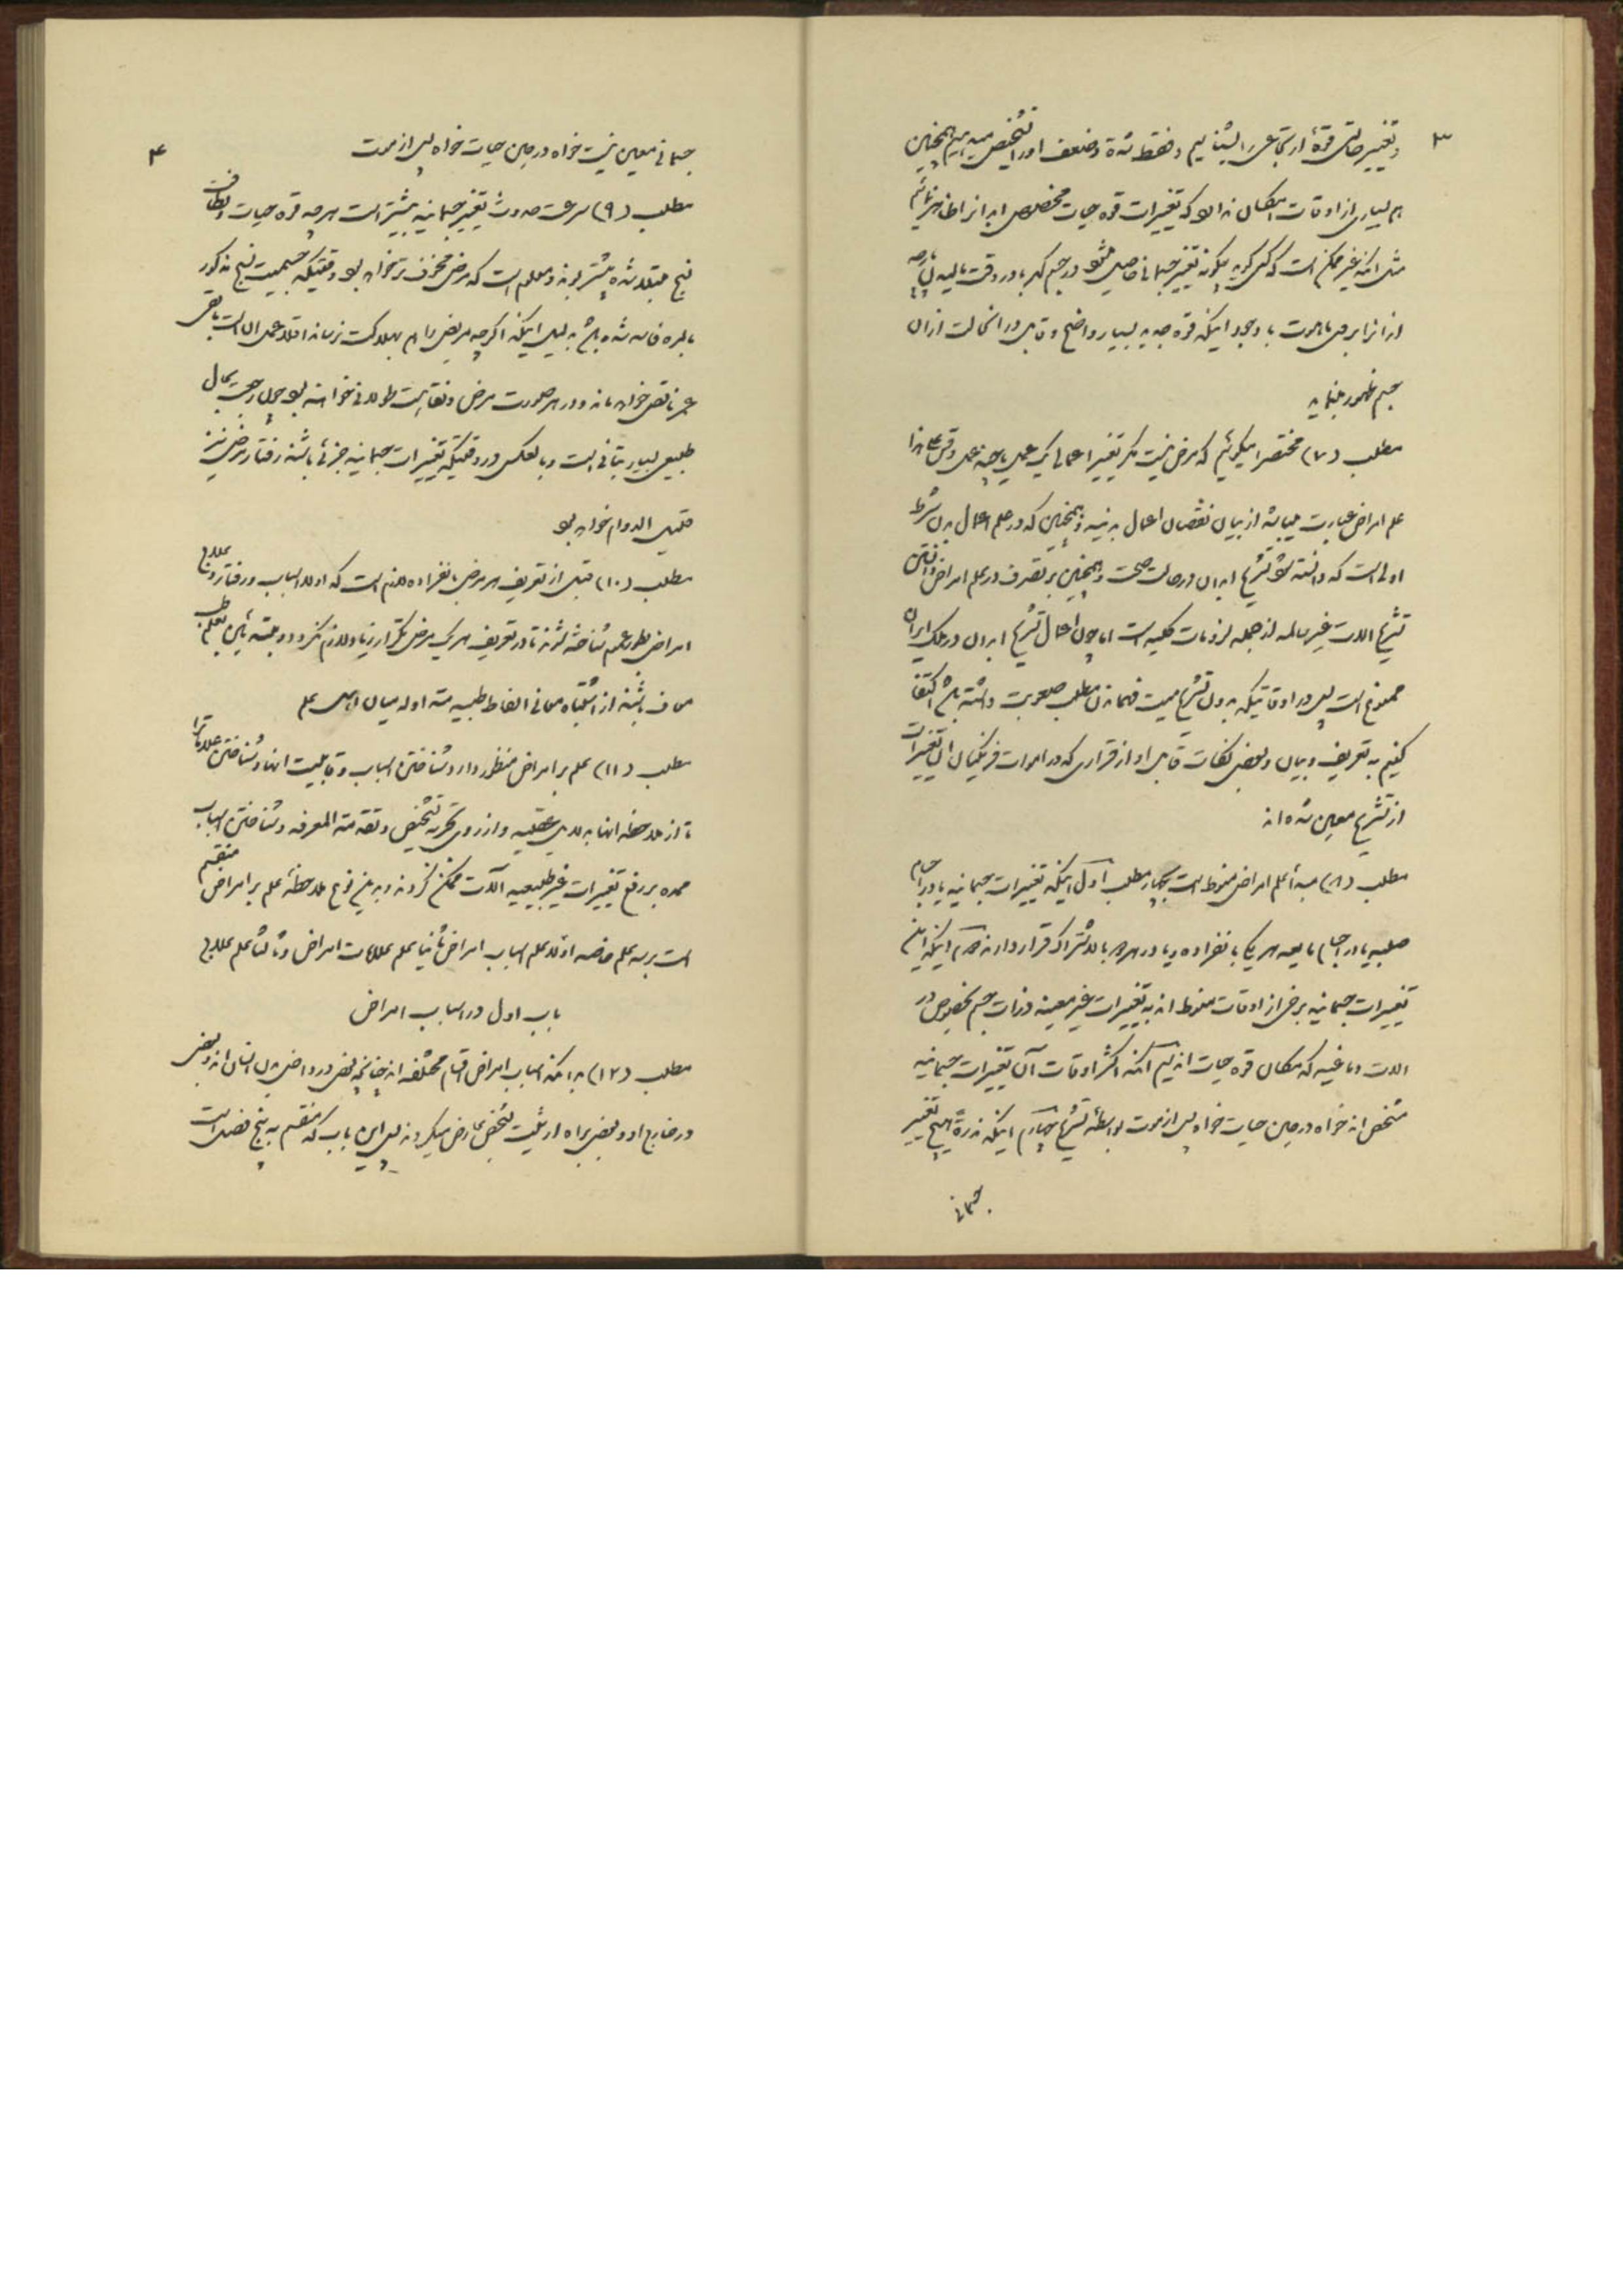 ۳
و تغییر حالتی قوهٔ ارتجاعی را بشناسیم و فقط شدة و ضعف او را تشخیص میدهیم همچنین
هم بسیاری از اوقات امکان ندارد که تغییرات قوه حیات مخصوص ابدانرا ظاهر نمائیم
مثل اینکه غیر ممکن است که کسی گوید چگونه تغییر جسمانی حاصل میشود در جسم کهربا در وقت مالیدن
از آثار برقی با وجود اینکه قوه جدیده بسیار واضح و قابل در انحالت از ان
جسم ظهور مینماید
مطلب (۷) مختصرا میگوئیم که مرض نیست مگر تغییر اعمالی یک عمل یا چند عمل
علم امراض عبارت میباشد از بیان نقصان اعمال بدنیه و همچنین که در علم اعمال بدن شرط
اولی است که دانسته شود تشریح ابدان در حالت صحت و همچنین بر تصرف در علم امراض دانستن
تشریح الات غیر سالمه از جمله لزومات کلیه است اما چون اعمال تشریح ابدان در ملک ایران
ممنوع است پس در اوقاتیکه بدون تشریح میت فهماندن مطلب صعوبت داشته باشد اکتفا
کنیم به تعریف و بیان و بعضی نکات قابل او از قراری که در اموات فرنگیان این تغییرات
از تشریح معین شده اند
مطلب (۸) مبدأ علم امراض منوط است بچهار مطلب اول اینکه تغییرات جسمانیه یا در اجسام
صلبیه یا در اجسام مایعه هر یکی بانفراده و یا در هر دو بالاشتراک قرار دارند دوم اینکه این
تغییرات جسمانیه برخی از اوقات منوط اند به تغییرات غیر معینه ذرات جسم بخصوص در
الات دماغیه که مکان قوه حیات اند سیم آنکه اکثر اوقات آن تغییرات جسمانیه
مشخص اند خواه در حین حیات خواه پس از موت بواسطهٔ تشریح چهارم اینکه ندرةً هیچ تغییر
جسمانی
۴
جسمانی معین نیست خواه در حین حیات خواه پس از موت
مطلب (۹) سرعت حدوث تغییر جسمانیه بیشتر است هر چه قوه حیات و لطافت
نسج مبتلا شده بیشتر بوند و معلوم است که مرض مخوف تر خواهد بود وقتیکه جسمیت نسج مذکور
بالمره فاسد شده باشد بدلیل اینکه اگرچه مریض را هم بهلاکت نرساند اقلا عمل ان الت باقی
عمر ناقص خواهد ماند و در هر صورت مرض و نقاهت طولانی خواهند بود چون رجعت بحال
طبیعی بسیار بتانی است و بالعکس در وقتیکه تغییرات جسمانیه جزئی باشند رفتار مرض نیز
قلیل الدوام خواهد بود
مطلب (۱۰) قبل از تعریف هر مرض بانفراده لازم است که اولا اسباب و رفتار و علاج
امراض بطور عموم شناخته شوند تا در تعریف هر یک مرض تکرار زیاد لازم نگردد و مبتدئین بعلم طب
معاف باشند از اشتباه معانی الفاظ طبیه متداوله میان اهل علم
مطلب (۱۱) علم بر امراض منظور دارد شناختن اسباب و قابلیت انها و شناختن علامات را
تا از ملاحظه انها بدلایل عقلیه و از روی تجربه تشخیص و تقدمة المعرفه و شناختن اسباب
ممده بر رفع تغییرات غیر طبیعیه آلات ممکن گردند و بدین نوع ملاحظهٔ علم بر امراض منقسم
است بر سه علم خاصه اولا علم اسباب امراض ثانیا علم علامات امراض و ثالثا علم علاج
باب اول در اسباب امراض
مطلب (۱۲) بدانکه اسباب امراض اقسام مختلفه اند چنانچه بعضی در داخل بدن انسان اند و بعضی
در خارج او و بعضی براه ارثیت شخص عارض میگردند پس این باب که منقسم به پنج فصل است